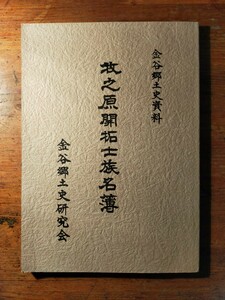 金谷郷土史資料
牧之原開拓士族名簿
金谷郷土史研究会